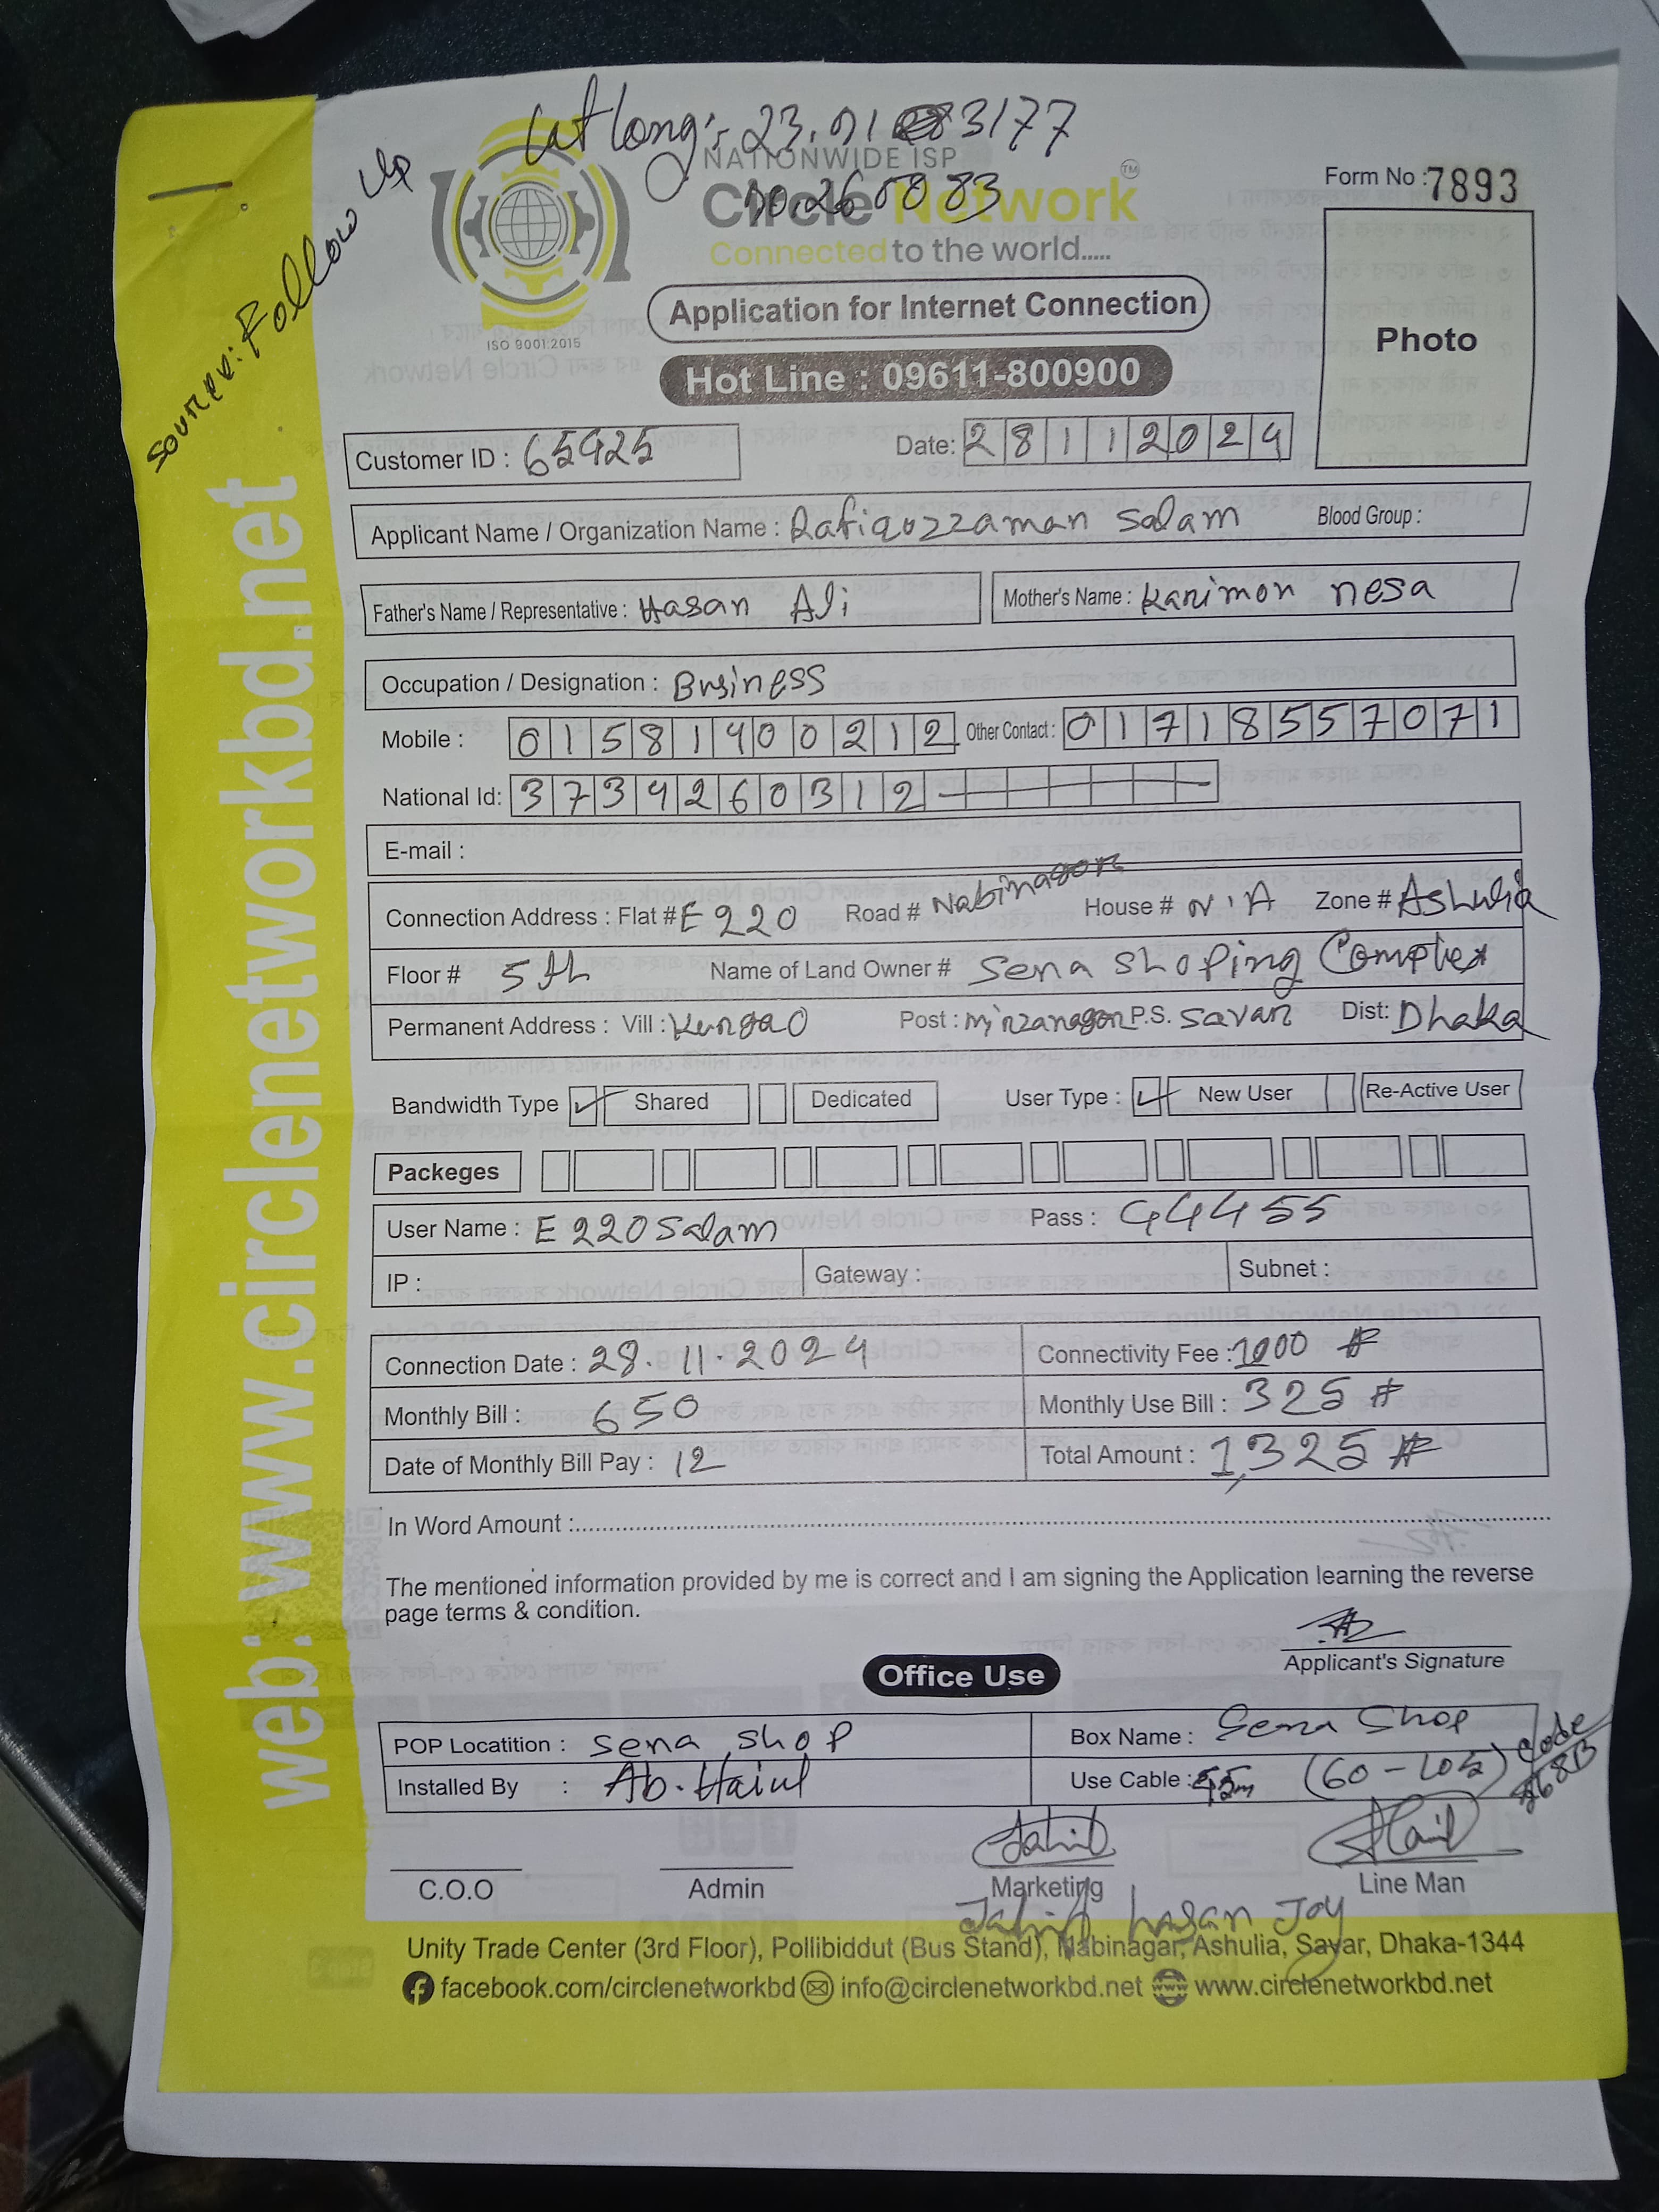 Lat long:- 23.91 83177
90.265083
Source: Follow Up
NATIONWIDE ISP
Circle Network TM
Connected to the world.....
ISO 9001:2015
Form No : 7893
Application for Internet Connection
Photo
Hot Line : 09611-800900
Customer ID : 65425
Date: 28112024
Applicant Name / Organization Name : Rafiquzzaman Salam Blood Group :
Father's Name / Representative : Hasan Ali Mother's Name : Karimon nesa
Occupation / Designation : Business
Mobile : 01581400212 Other Contact : 01718557071
National Id: 3734260312
E-mail :
Connection Address : Flat # E 220 Road # Nabinagor House # N'A Zone # Ashulia
Floor # 5th Name of Land Owner # Sena Shoping Complex
Permanent Address : Vill : Kurgao Post : Mirzanagor P.S. Savar Dist: Dhaka
Bandwidth Type Shared Dedicated User Type : New User Re-Active User
Packeges
User Name : E 220 Salam Pass : 44455
IP : Gateway : Subnet :
Connection Date : 28.11.2024 Connectivity Fee : 1000 #
Monthly Bill : 650 Monthly Use Bill : 325 #
Date of Monthly Bill Pay : 12 Total Amount : 1,325 #
In Word Amount :
The mentioned information provided by me is correct and I am signing the Application learning the reverse
page terms & condition.
Applicant's Signature
Office Use
POP Locatition : Sena Shop Box Name : Sena Shop
Installed By : Ab. Haiul Use Cable : 45m (60-105) Code
C.O.O Admin Marketing Line Man
hasan Joy
Unity Trade Center (3rd Floor), Pollibiddut (Bus Stand), Nabinagar, Ashulia, Savar, Dhaka-1344
facebook.com/circlenetworkbd info@circlenetworkbd.net www.circlenetworkbd.net
web: www.circlenetworkbd.net